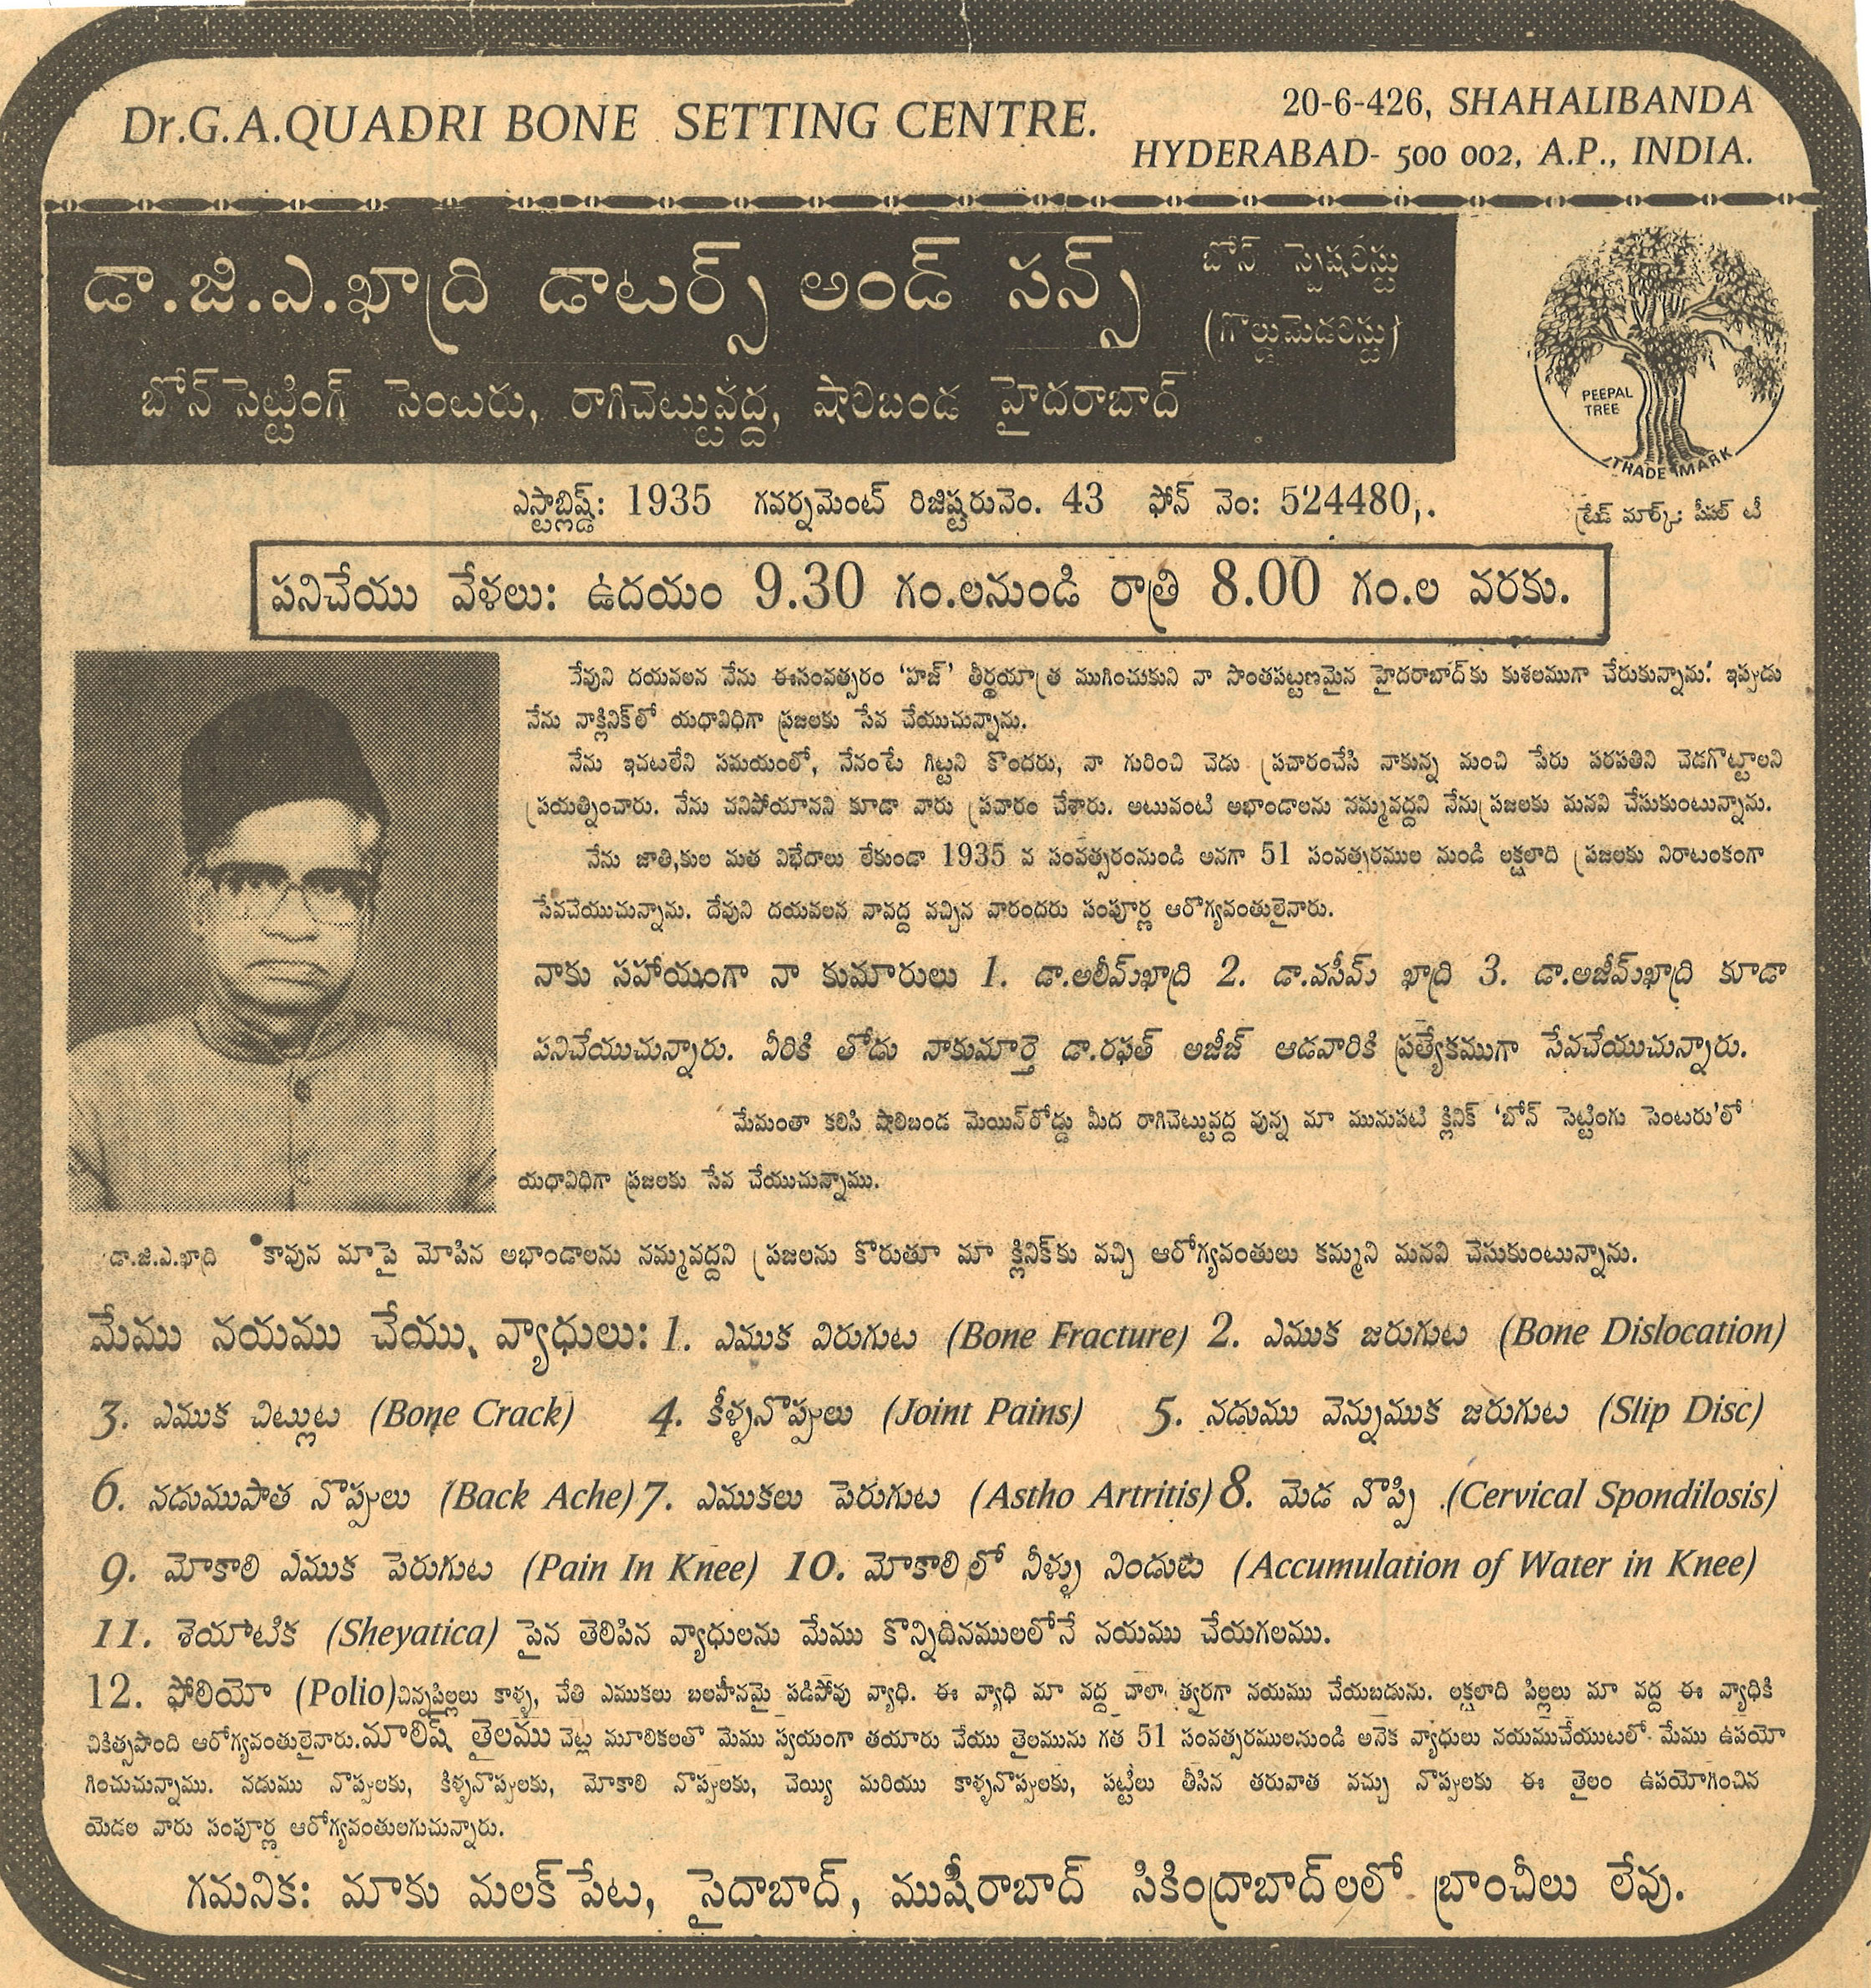 Dr.G.A.QUADRI BONE SETTING CENTRE.
20-6-426, SHAHALIBANDA
HYDERABAD- 500 002, A.P., INDIA.
డా.జి.ఎ.ఖాద్రి డాటర్స్ అండ్ సన్స్
బోన్ స్పెషలిస్టు
(గొల్డుమెడలిస్టు)
బోన్ సెట్టింగ్ సెంటరు, రాగిచెట్టువద్ద, షాలిబండ హైదరాబాద్
PEEPAL
TREE
TRADE MARK
ఎస్టాబ్లిష్డ్: 1935 గవర్నమెంట్ రిజిష్టరునెం. 43 ఫోన్ నెం: 524480,.
ట్రేడ్ మార్క్: పీపల్ టీ
పనిచేయు వేళలు: ఉదయం 9.30 గం.లనుండి రాత్రి 8.00 గం.ల వరకు.
దేవుని దయవలన నేను ఈసంవత్సరం ‘హజ్’ తీర్థయాత్ర ముగించుకుని నా సొంతపట్టణమైన హైదరాబాద్‌కు కుశలముగా చేరుకున్నాను. ఇప్పుడు
నేను నాక్లినిక్‌లో యధావిధిగా ప్రజలకు సేవ చేయుచున్నాను.
నేను ఇచటలేని సమయంలో, నేనంటే గిట్టని కొందరు, నా గురించి చెడు ప్రచారంచేసి నాకున్న మంచి పేరు పరపతిని చెడగొట్టాలని
ప్రయత్నించారు. నేను చనిపోయానని కూడా వారు ప్రచారం చేశారు. అటువంటి అభాండాలను నమ్మవద్దని నేను ప్రజలకు మనవి చేసుకుంటున్నాను.
నేను జాతి,కుల మత విభేదాలు లేకుండా 1935 వ సంవత్సరంనుండి అనగా 51 సంవత్సరముల నుండి లక్షలాది ప్రజలకు నిరాటంకంగా
సేవచేయుచున్నాను. దేవుని దయవలన నావద్ద వచ్చిన వారందరు సంపూర్ణ ఆరోగ్యవంతులైనారు.
నాకు సహాయంగా నా కుమారులు 1. డా.అలీమ్‌ఖాద్రి 2. డా.వసీమ్ ఖాద్రి 3. డా.అజీమ్‌ఖాద్రి కూడా
పనిచేయుచున్నారు. వీరికి తోడు నాకుమార్తె డా.రఫత్ అజీజ్ ఆడవారికి ప్రత్యేకముగా సేవచేయుచున్నారు.
మేమంతా కలిసి షాలిబండ మెయిన్‌రోడ్డు మీద రాగిచెట్టువద్ద వున్న మా మునుపటి క్లినిక్ ‘బోన్ సెట్టింగు సెంటరు’లో
యధావిధిగా ప్రజలకు సేవ చేయుచున్నాము.
డా.జి.ఎ.ఖాద్రి
కావున మాపై మోపిన అభాండాలను నమ్మవద్దని ప్రజలను కొరుతూ మా క్లినిక్‌కు వచ్చి ఆరోగ్యవంతులు కమ్మని మనవి చేసుకుంటున్నాను.
మేము నయము చేయు వ్యాధులు: 1. ఎముక విరుగుట (Bone Fracture) 2. ఎముక జరుగుట (Bone Dislocation)
3. ఎముక చిట్లుట (Bone Crack) 4. కీళ్ళనొప్పులు (Joint Pains) 5. నడుము వెన్నుముక జరుగుట (Slip Disc)
6. నడుముపాత నొప్పులు (Back Ache) 7. ఎముకలు పెరుగుట (Astho Artritis) 8. మెడ నొప్పి .(Cervical Spondilosis)
9. మోకాలి ఎముక పెరుగుట (Pain In Knee) 10. మోకాలి లో నీళ్ళు నిండుట (Accumulation of Water in Knee)
11. శెయాటిక (Sheyatica) పైన తెలిపిన వ్యాధులను మేము కొన్నిదినములలోనే నయము చేయగలము.
12. ఫోలియో (Polio) చిన్నపిల్లలు కాళ్ళ, చేతి ఎముకలు బలహీనమై పడిపోవు వ్యాధి. ఈ వ్యాధి మా వద్ద చాలా త్వరగా నయము చేయబడును. లక్షలాది పిల్లలు మా వద్ద ఈ వ్యాధికి
చికిత్సపొంది ఆరోగ్యవంతులైనారు. మాలిష్ తైలము చెట్ల మూలికలతో మేము స్వయంగా తయారు చేయు తైలమును గత 51 సంవత్సరములనుండి అనెక వ్యాధులు నయముచేయుటలో మేము ఉపయో
గించుచున్నాము. నడుము నొప్పులకు, కీళ్ళనొప్పులకు, మోకాలి నొప్పులకు, చెయ్యి మరియు కాళ్ళనొప్పులకు, పట్టీలు తీసిన తరువాత వచ్చు నొప్పులకు ఈ తైలం ఉపయోగించిన
యెడల వారు సంపూర్ణ ఆరోగ్యవంతులగుచున్నారు.
గమనిక: మాకు మలక్ పేట, సైదాబాద్, ముషీరాబాద్ సికింద్రాబాద్‌లలో బ్రాంచీలు లేవు.